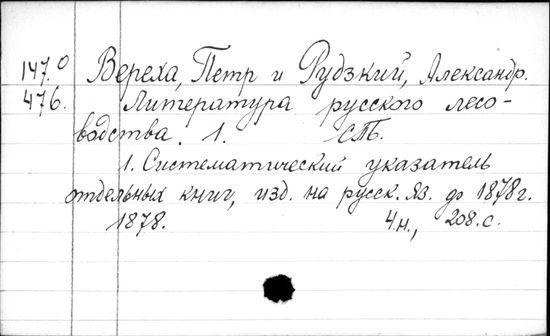 147.0 Вереха, Петр и Рудзкий, Александр.
476. Литература русского лесо-
водства. 1. СПб.
1. Систематический указатель
отдельных книг, изд. на русск. яз. до 1878г.
1878. 4н., 208.с.